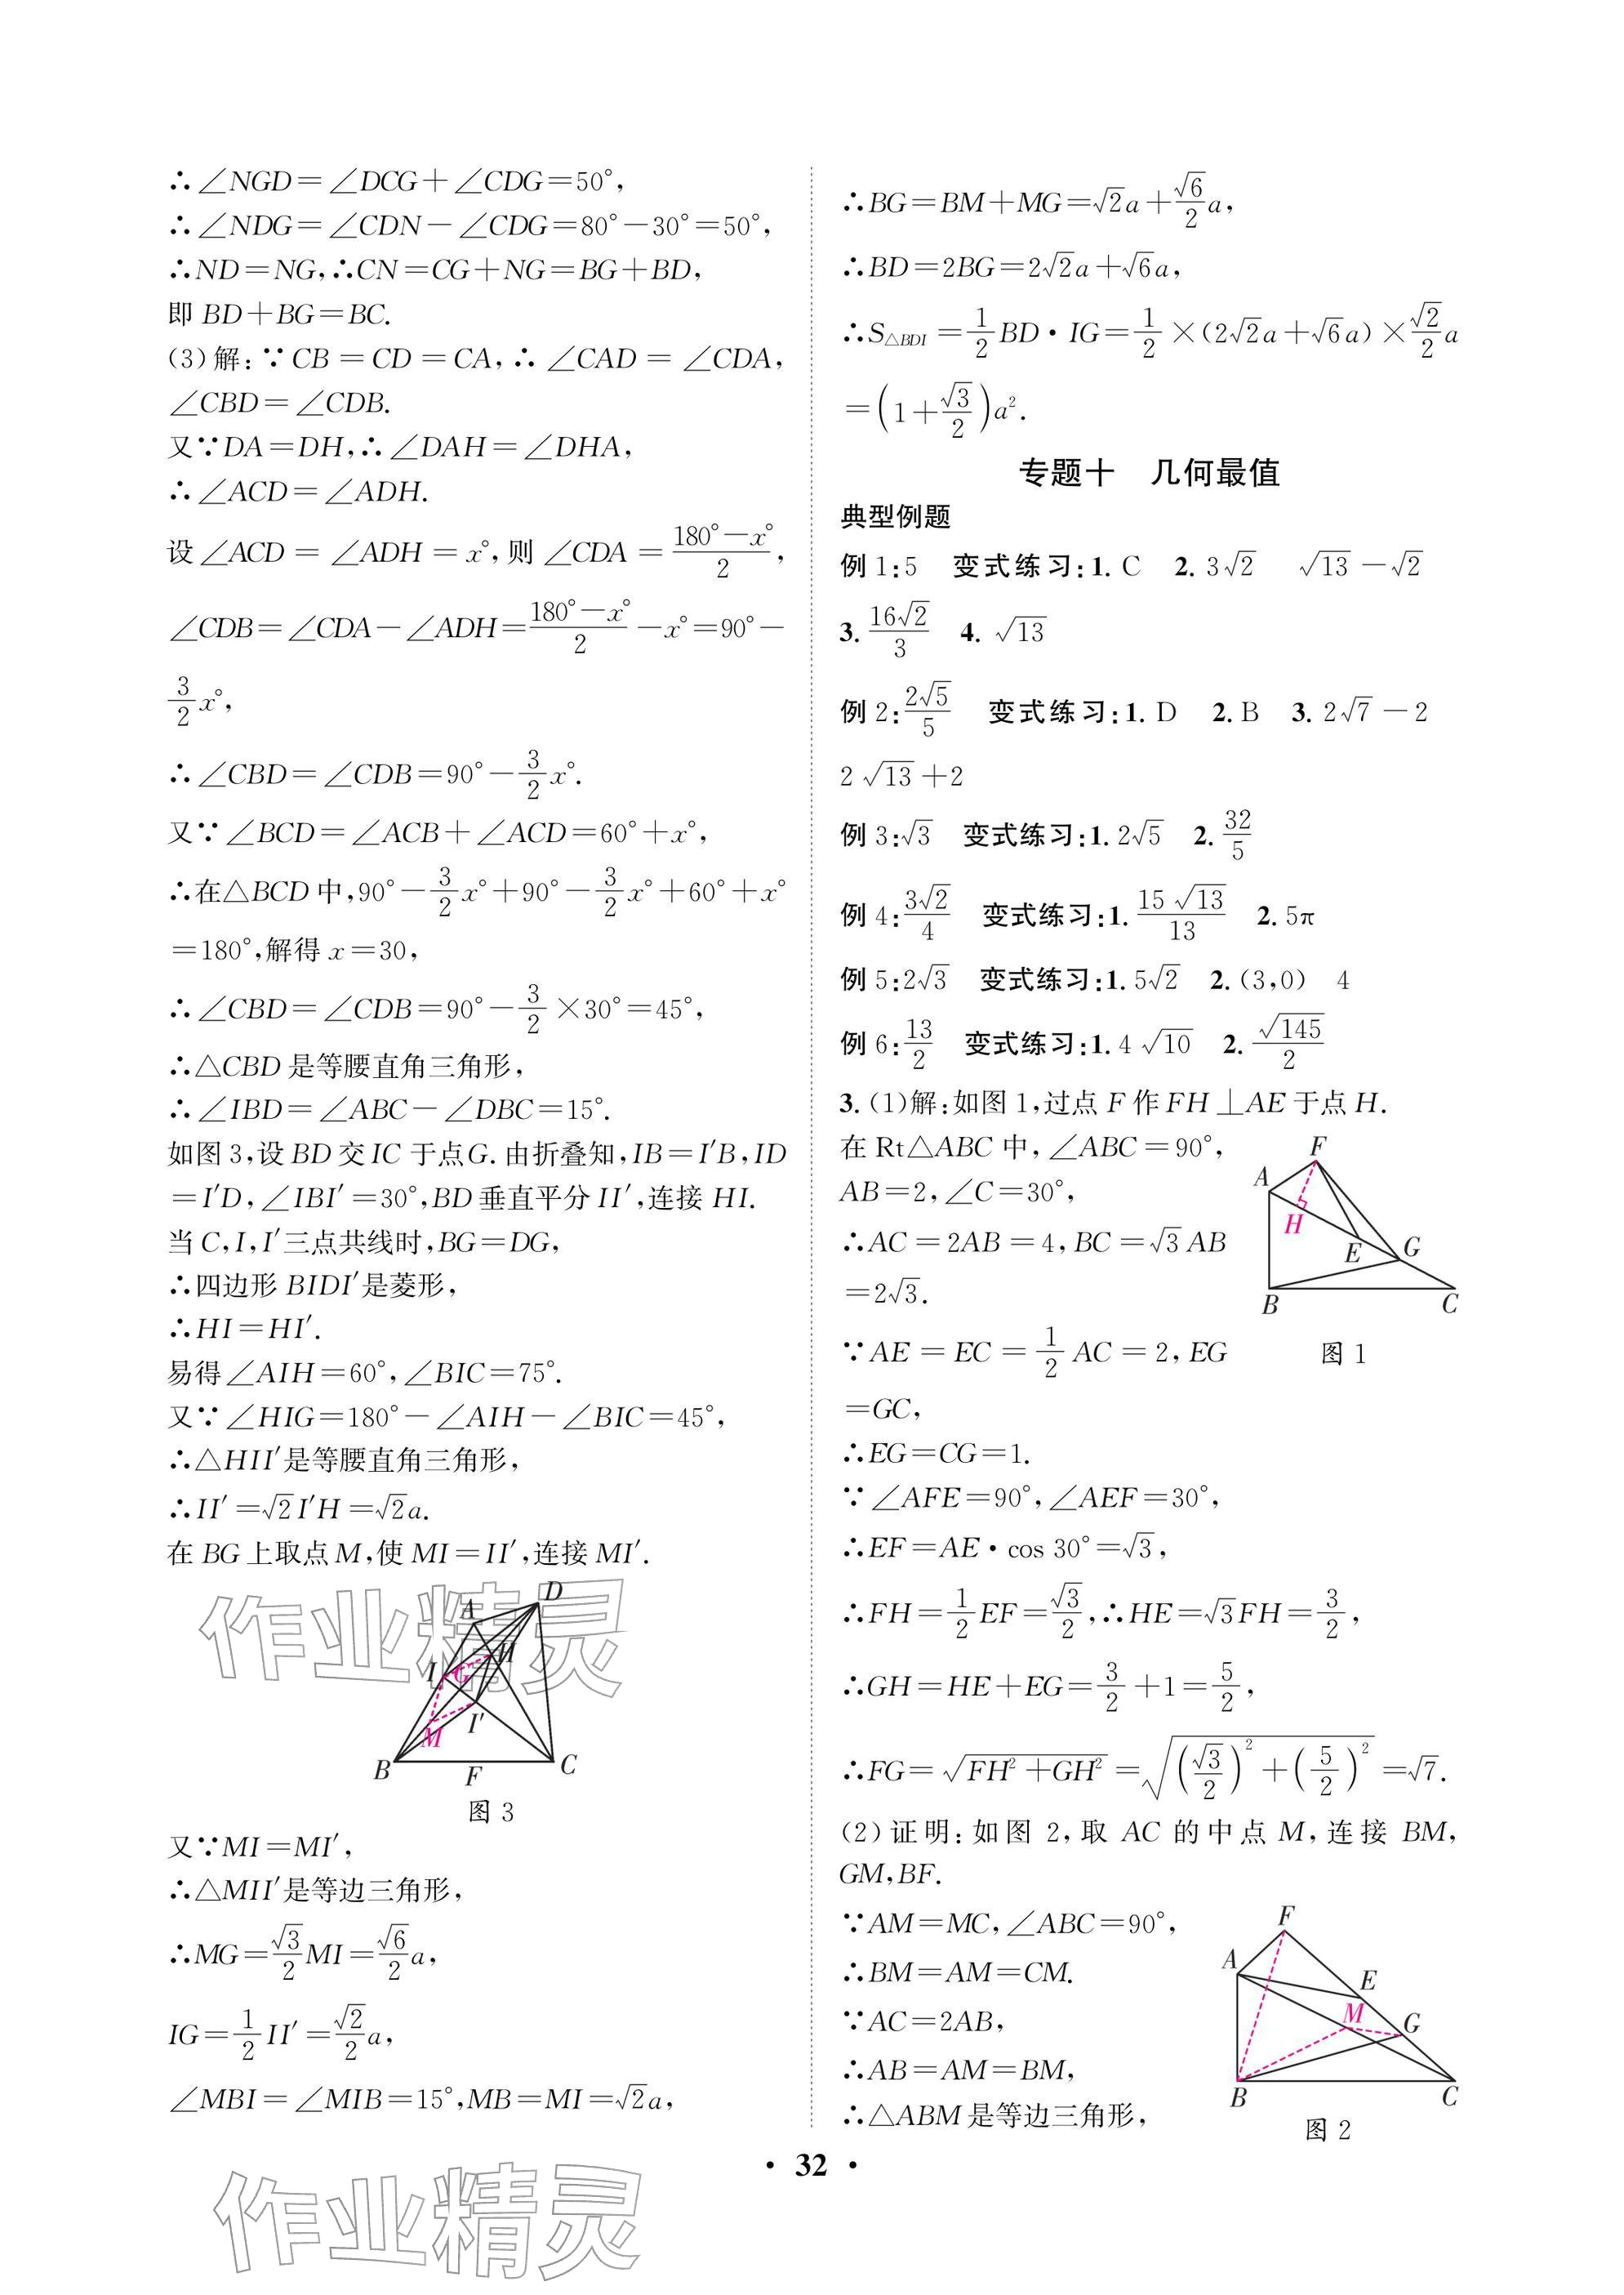 ∴∠NGD=∠DCG+∠CDG=50°,
∴∠NDG=∠CDN-∠CDG=80°-30°=50°,
∴ND=NG,∴CN=CG+NG=BG+BD,
即 BD+BG=BC.
(3)解:∵CB=CD=CA,∴∠CAD=∠CDA,
∠CBD=∠CDB.
又∵DA=DH,∴∠DAH=∠DHA,
∴∠ACD=∠ADH.
设∠ACD=∠ADH=x°,则∠CDA=(180°-x°)/2,
∠CDB=∠CDA-∠ADH=(180°-x°)/2-x°=90°-
3/2 x°,
∴∠CBD=∠CDB=90°-3/2 x°.
又∵∠BCD=∠ACB+∠ACD=60°+x°,
∴在△BCD中,90°-3/2 x°+90°-3/2 x°+60°+x°
=180°,解得 x=30,
∴∠CBD=∠CDB=90°-3/2×30°=45°,
∴△CBD是等腰直角三角形,
∴∠IBD=∠ABC-∠DBC=15°.
如图3,设BD交IC于点G.由折叠知,IB=I′B,ID
=I′D,∠IBI′=30°,BD垂直平分II′,连接HI.
当C,I,I′三点共线时,BG=DG,
∴四边形BIDI′是菱形,
∴HI=HI′.
易得∠AIH=60°,∠BIC=75°.
又∵∠HIG=180°-∠AIH-∠BIC=45°,
∴△HII′是等腰直角三角形,
∴II′=√2I′H=√2a.
在BG上取点M,使MI=II′,连接MI′.
D
A
H
I
G
I′
M
B
F
C
图3
又∵MI=MI′,
∴△MII′是等边三角形,
∴MG=√3/2 MI=√6/2 a,
IG=1/2 II′=√2/2 a,
∠MBI=∠MIB=15°,MB=MI=√2a,
∴BG=BM+MG=√2a+√6/2 a,
∴BD=2BG=2√2a+√6a,
∴S△BDI=1/2 BD·IG=1/2×(2√2a+√6a)×√2/2 a
=(1+√3/2)a².
专题十 几何最值
典型例题
例1:5 变式练习:1. C 2. 3√2 √13-√2
3. 16√2/3 4. √13
例2:2√5/5 变式练习:1. D 2. B 3. 2√7-2
2√13+2
例3:√3 变式练习:1. 2√5 2. 32/5
例4:3√2/4 变式练习:1. 15√13/13 2. 5π
例5:2√3 变式练习:1. 5√2 2. (3,0) 4
例6:13/2 变式练习:1. 4√10 2. √145/2
3. (1)解:如图1,过点F作FH⊥AE于点H.
在Rt△ABC中,∠ABC=90°,
AB=2,∠C=30°,
∴AC=2AB=4,BC=√3AB
=2√3.
∵AE=EC=1/2 AC=2,EG
=GC,
F
A
H
E
G
B
C
图1
∴EG=CG=1.
∵∠AFE=90°,∠AEF=30°,
∴EF=AE·cos 30°=√3,
∴FH=1/2 EF=√3/2,∴HE=√3FH=3/2,
∴GH=HE+EG=3/2+1=5/2,
∴FG=√(FH²+GH²)=√((√3/2)²+(5/2)²)=√7.
(2)证明:如图2,取AC的中点M,连接BM,
GM,BF.
∵AM=MC,∠ABC=90°,
∴BM=AM=CM.
∵AC=2AB,
∴AB=AM=BM,
∴△ABM是等边三角形,
F
A
E
M
G
B
C
图2
·32·
作业精灵
作业精灵